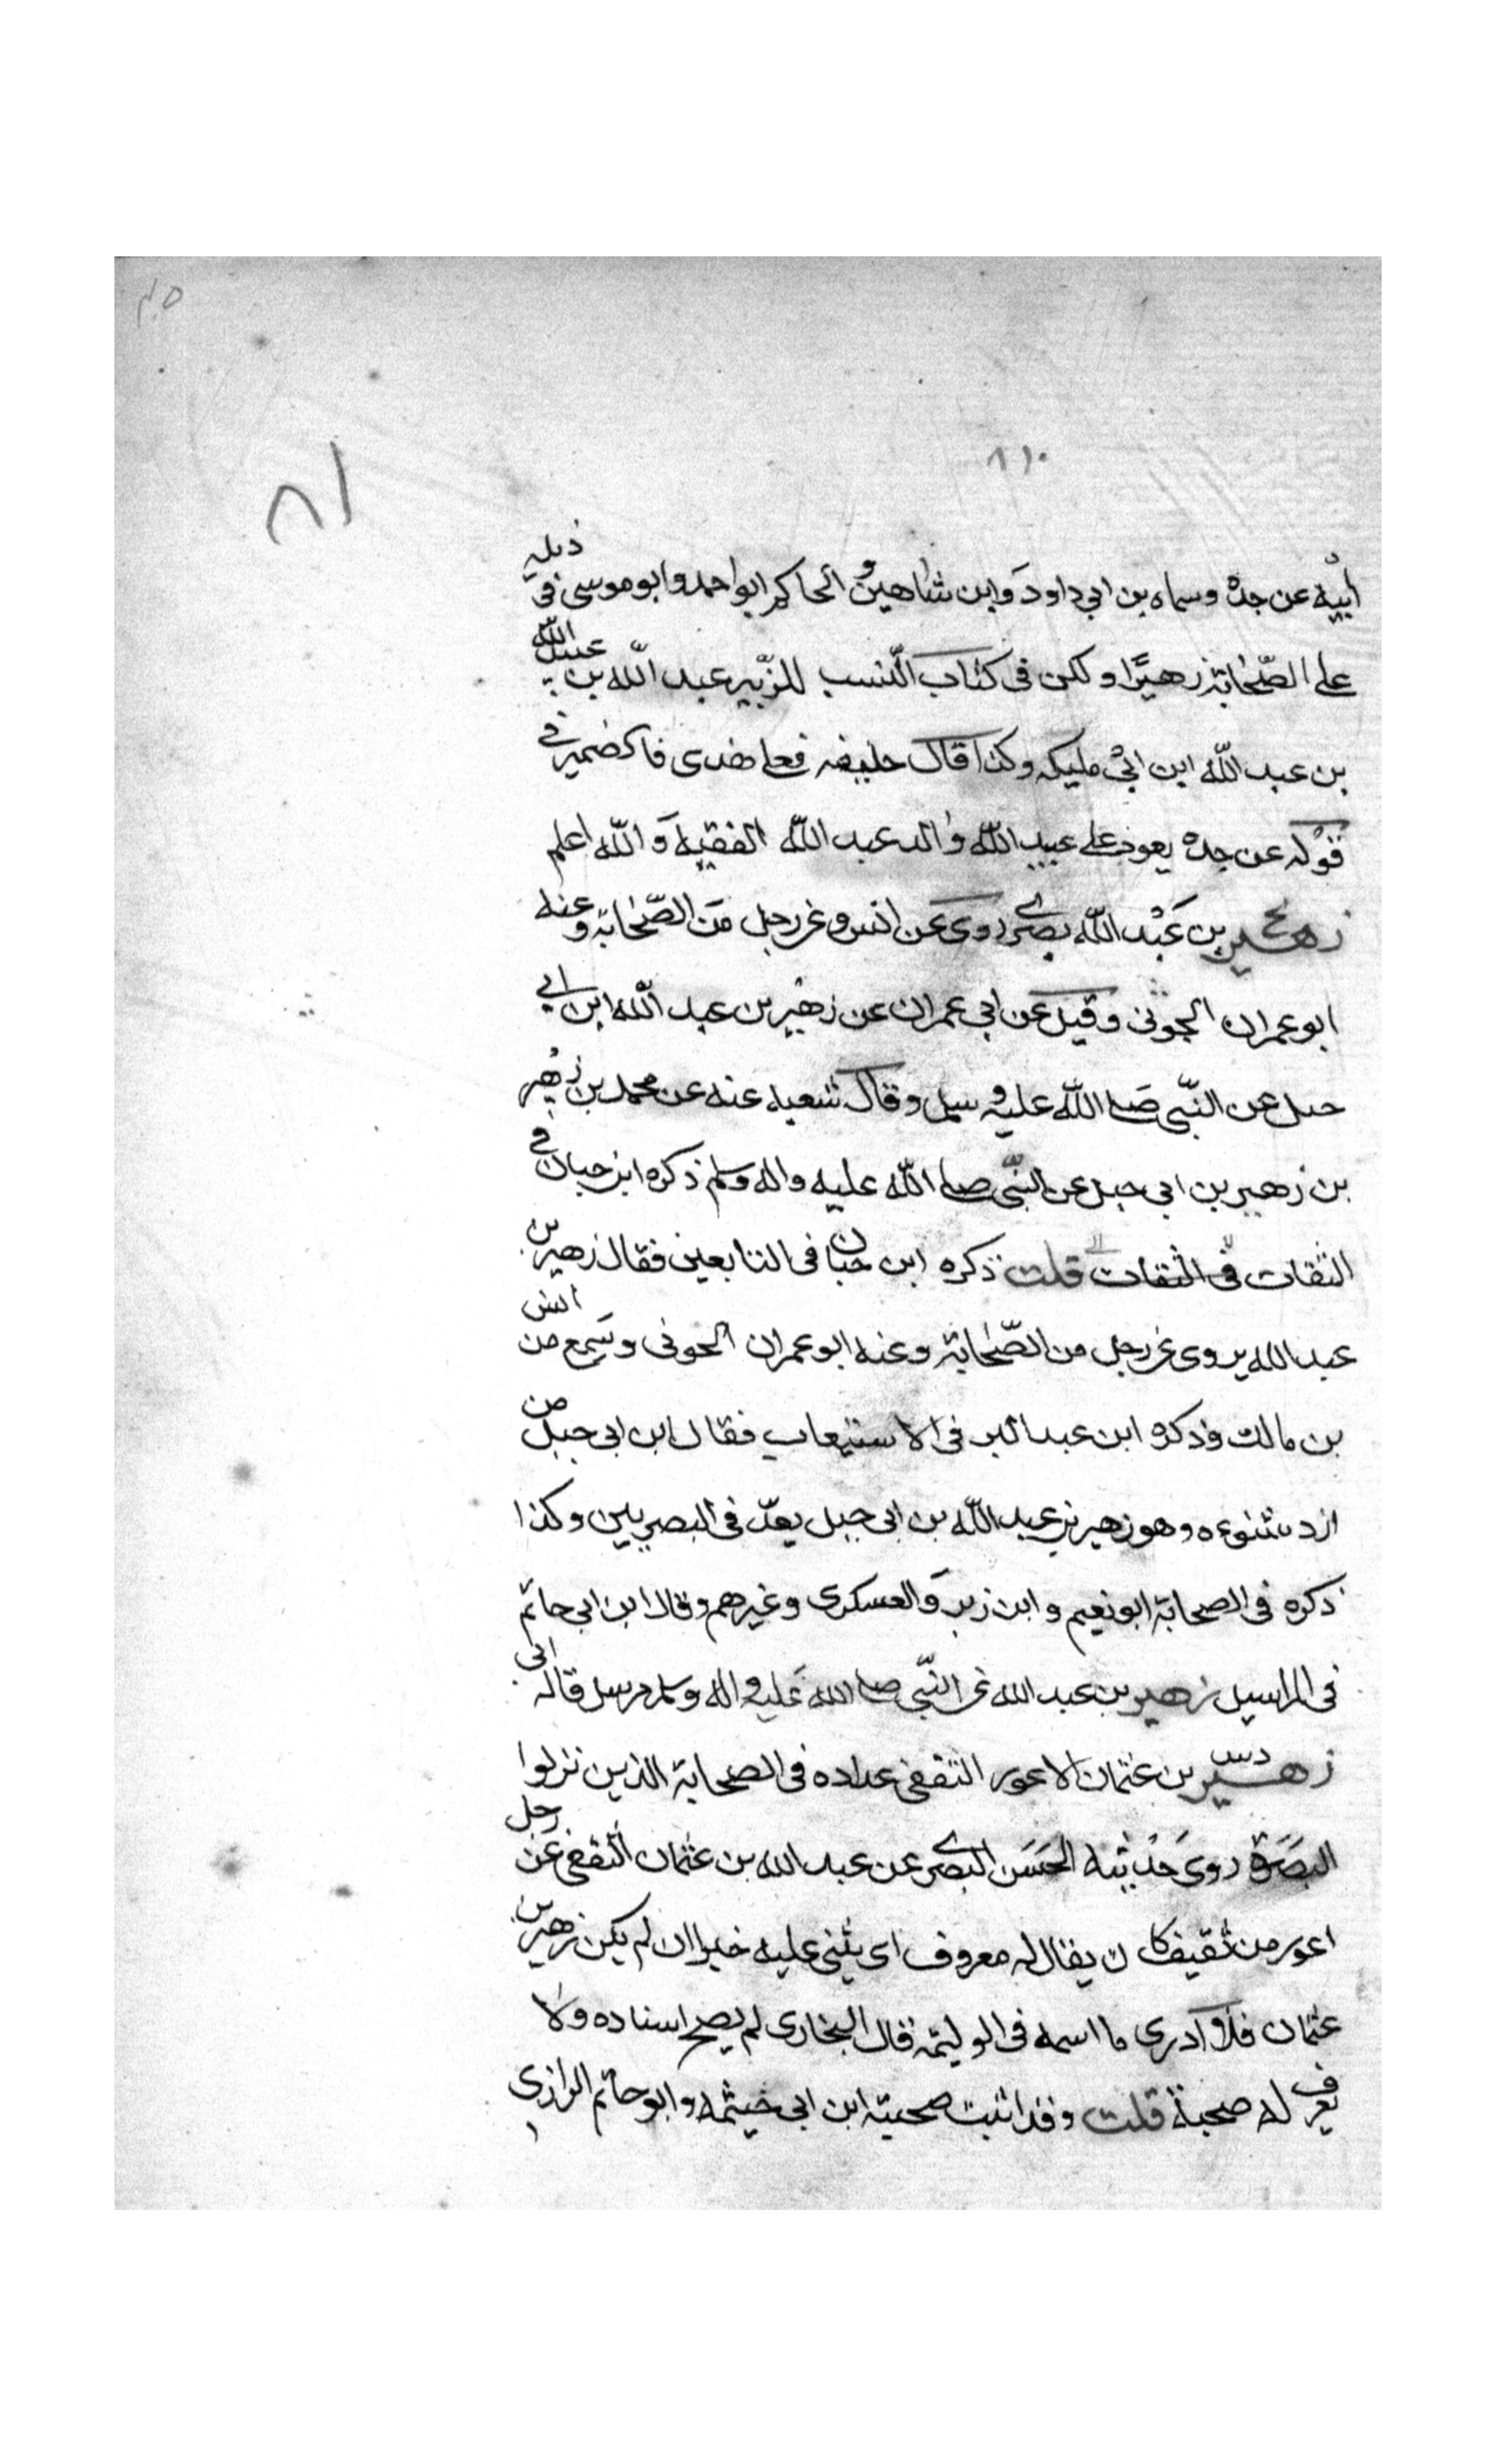 ٢٠٥
٨١٠
٨١
ابيه عن جده وسماه بن ابي داود وابن شاهين و الحاكم ابو احمد وابو موسى فى ذيله
على الصّحابة زهيرًا ولكن فى كتاب النسب للزّبير عبد الله بن عبيد الله
بن عبد الله ابن ابى مليكه وكذا قال خليفه فعلى هذى فاكضمير في
قوله عن جده يعود على عبيد الله والد عبد الله الفقيه وَالله اعلم
زهير بن عَبْد الله بصري روى عَن انس وعن رجل مَن الصّحابة وعنه
ابو عمران الجونى وقيل عن ابى عمران عن زهير بن عبد الله ابن ابي
جبل عن النبّى صَلى الله عليه و سلم وقال شعبه عنه عن محمد بن زُهير
بن زهير بن ابى جبل عن النبّى صلى الله عليه واله وسلم ذكره ابن حبان في
الثقات فى الثقات قلت ذكره ابن حبان فى التابعين فقال زهير بن
عبد الله يروى عن رجل من الصّحابة وعنه ابو عمران الجونى وسَمِع من انس
بن مالك وذكره ابن عبد البر فى الاستيعاب فقال ابن ابى جبل من
ازد شنوءه وهو زهير بن عبد الله بن ابى جبل يعدّ فى البصريين وكذا
ذكره فى الصحابة ابو نعيم وابن زبر وَالعسكرى وغيرهم وقال ابن ابى حاتم
فى المراسيل زهير بن عبد الله عن النبّى صلى الله عَليه و اله وسلم مرسل قاله ابى
زهير دس بن عثمان الاعور الثقفى عداده فى الصحابة الذين نزلوا
البصَرة روى حَدْيثه الحَسَن البصري عن عبد الله بن عثمان الثقفى عن رجل
اعور من ثقيف كان يقال له معروف اى يثنى عليه خيرا ان لم يكن زهير بن
عثمان فلا ادرى ما اسمه فى الوليمة قال البخارى لم يصح اسناده ولا
يعرف له صحبة قلت وقد اثبت صحبته ابن ابى خيثمه وابو حاتم الرازى